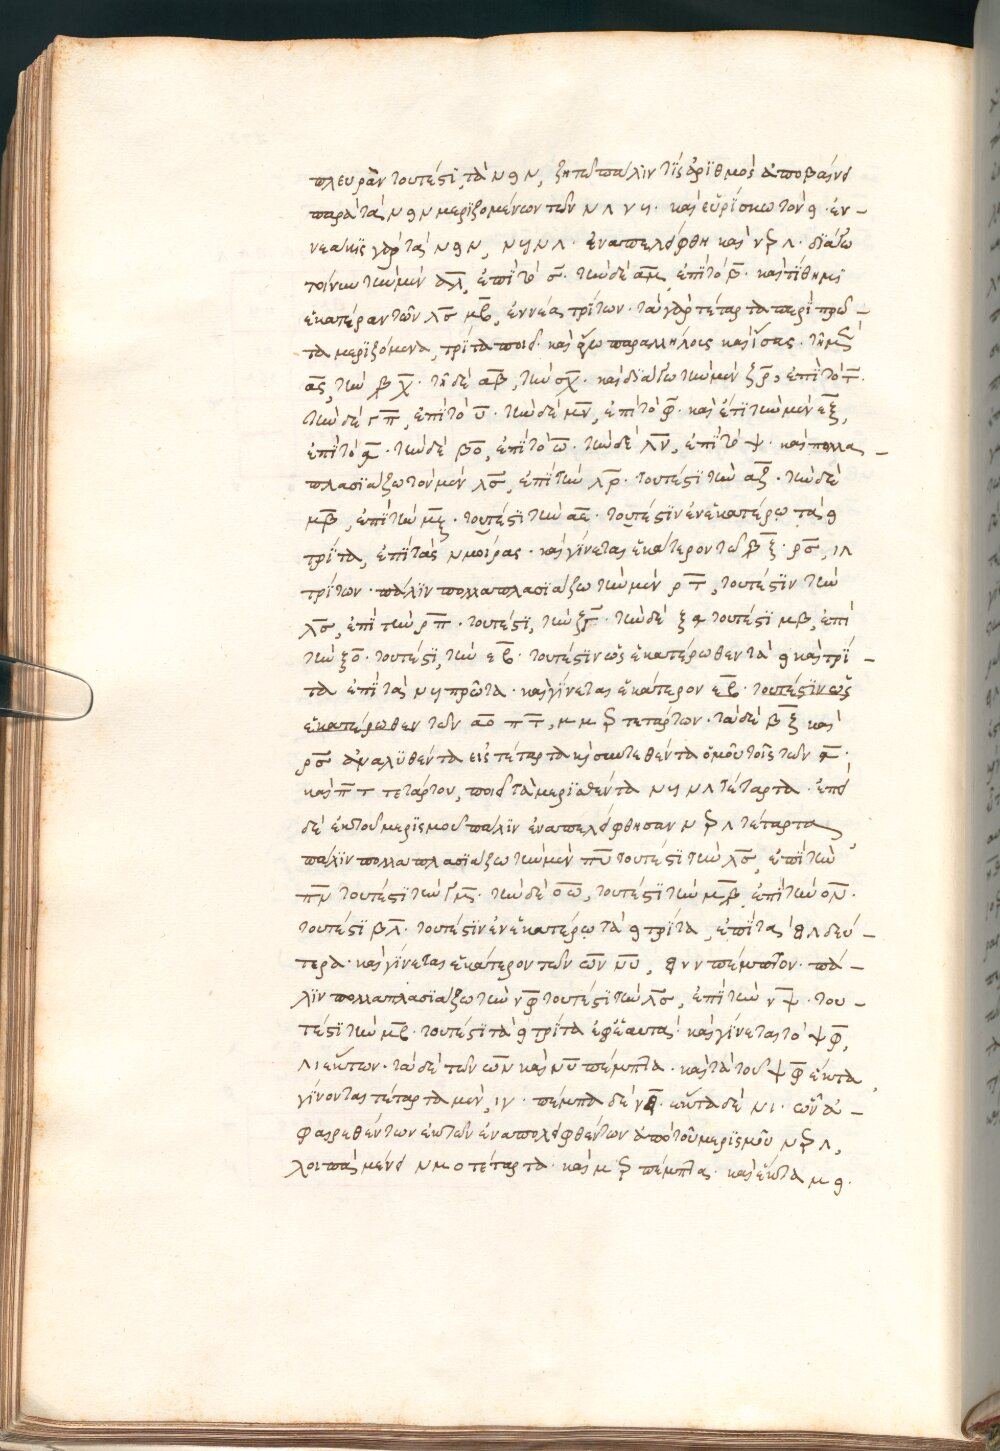 πλευρὰν τουτέστι, τὰ ν θ ν, ζητῶ πάλιν τίς ἀριθμὸς ἀποβαίνει
παρὰ τὰ ν θ ν μεριζομένων τῶν ν λ ν η · καὶ εὑρίσκω τὸν θ · ἐν–
νεάκις γὰρ τὰ ν θ ν, ν η ν λ · ἐναπελείφθη καὶ ν ϛ λ · διάγω
τοίνυν τὴν μὲν α̅λ̅, ἐπὶ τὸ σ̅ · τὴν δὲ α̅μ̅, ἐπὶ τὸ β̅ · καὶ τίθημι
ἑκατέραν τῶν λ̅σ̅ μ̅β̅, ἐννέα τρίτων · τὰ γὰρ τέταρτα περὶ πρῶ–
τα μεριζόμενα, τρίτα ποιεῖ · καὶ ἄγω παραλλήλους καὶ ἴσας · τῇ μὲν
α̅ς̅, τὴν β̅χ̅ · τῇ δὲ α̅β̅, τὴν σ̅χ̅ · καὶ διάγω τὴν μὲν ξ̅ρ̅, ἐπὶ τὸ τ̅ ·
τὴν δὲ γ̅π̅, ἐπὶ τὸ υ̅ · τὴν δὲ μ̅ν̅, ἐπὶ τὸ φ̅ · καὶ ἔτι τὴν μὲν ε̅ξ̅,
ἐπὶ τὸ · τὴν δὲ β̅ο̅, ἐπὶ τὸ ω̅ · τὴν δὲ λ̅ν̅, ἐπὶ τὸ ψ · καὶ πολλα–
πλασιάζω τὸν μὲν λ̅σ̅, ἐπὶ τὴν λ̅ρ̅ · τουτέστι τὴν α̅ξ̅ · τὴν δὲ
μ̅β̅, ἐπὶ τὴν μ̅ξ̅ · τουτέστι τὴν α̅ε̅ · τουτέστιν ἐν ἑκατέρῳ τὰ θ
τρίτα, ἐπὶ τὰς ν μοίρας · καὶ γίνεται ἑκάτερον τῶν β̅ξ̅ · ρ̅σ̅, ι λ
τρίτων · πάλιν πολλαπλασιάζω τὴν μὲν ρ̅τ̅, τουτέστιν τὴν
λ̅σ̅, ἐπὶ τὴν ρ̅π̅ · τουτέστι, τὴν · τὴν δὲ τουτέστι μβ, ἐπὶ
τὴν ξ̅ο̅ · τουτέστι, τὴν ε̅β̅ · τουτέστιν ὡς ἑκατέρωθεν τὰ θ καὶ τρί–
τα ἐπὶ τὰ ν η πρῶτα · καὶ γίνεται ἑκάτερον ε̅β̅ · τουτέστιν ὡς
ἑκατέρωθεν τῶν α̅ο̅ π̅τ̅, κ μ ϛ τετάρτων · τὰ δὲ β̅ξ̅ καὶ
ρ̅σ̅ ἀναλυθέντα εἰς τέταρτα καὶ συντεθέντα ὁμοῦ τοῖς τῶν ·
καὶ π̅τ̅ τετάρτον, ποιεῖ τὰ μερισθέντα ν η ν λ τέταρτα · ἐπεὶ
δὲ ἐκ τοῦ μερισμοῦ πάλιν ἐναπελείφθησαν ν ϛ λ τέταρτα,
πάλιν πολλαπλασιάζω τὴν μὲν π̅υ̅ τουτέστι τὴν λ̅σ̅, ἐπὶ τὴν
π̅ν̅ τουτέστι τὴν · τὴν δὲ ο̅ω̅, τουτέστι τὴν μ̅β̅, ἐπὶ τὴν ο̅ν̅ ·
τουτέστι β̅λ̅ · τουτέστιν ἐν ἑκατέρῳ τὰ θ τρίτα, ἐπὶ τὰ λ δεύ–
τερα · καὶ γίνεται ἑκάτερον τῶν ω̅ν̅ ν̅υ̅, ν ν πέμπτον · πά–
λιν πολλαπλασιάζω τὴν ν̅φ̅ τουτέστι τὴν λ̅σ̅, ἐπὶ τὴν ν̅ψ̅ · του–
τέστι τὴν μ̅β̅ · τουτέστι τὰ θ τρίτα ἐφ’ ἑαυτά · καὶ γίνεται τὸ ψ̅φ̅,
λ ι ἕκτων · τὰ δὲ τῶν ω̅ν̅ καὶ ν̅υ̅ πέμπτα · καὶ τὰ τοῦ ψ̅φ̅ ἕκτα,
γίνονται τέταρτα μὲν, ι γ · πέμπτα δὲ · ἕκτα δὲ ν ι · ὧν ἀ–
φαιρεθέντων ἐκ τῶν ἐναπολειφθέντων ἀπὸ τοῦ μερισμοῦ ν ϛ λ,
λοιπὰ μένει ν μ ο τέταρτα · καὶ μ ϛ πέμπτα · καὶ ἕκτα μ θ ·